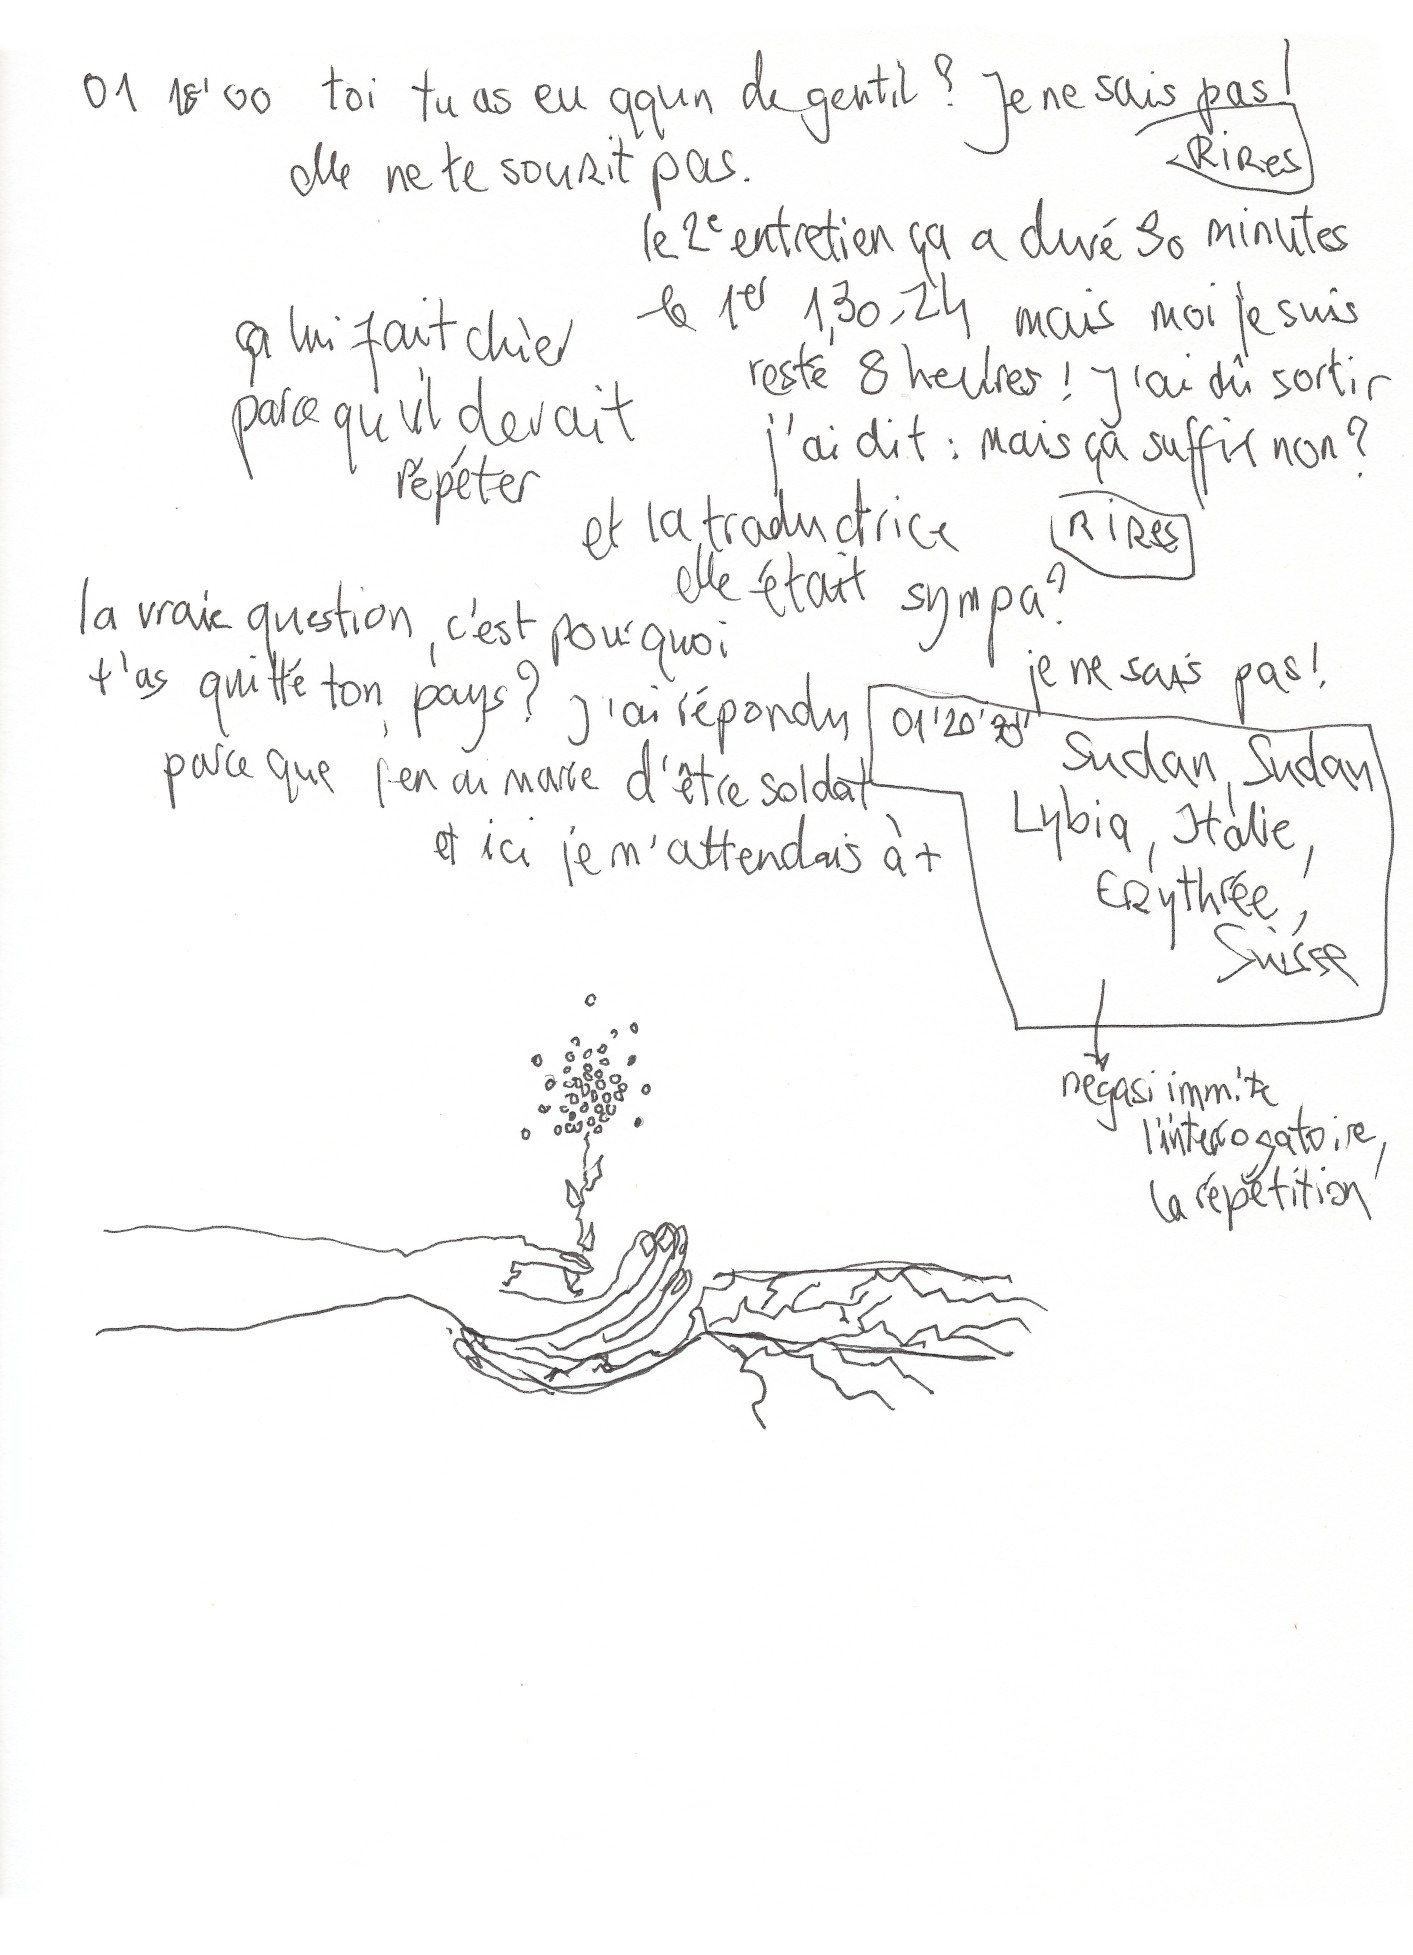 01 18'00 toi tu as eu qqun de gentil? Je ne sais pas!
RiRes
elle ne te souRit pas.
le 2e entretien ça a duré 30 minutes
le 1er 1,30, 24 mais moi je suis
resté 8 heures! J'ai dû sortir
j'ai dit : mais ça suffit non?
RiRes
ça lui fait chier
parce qu'il devait
répéter
et la traductrice
elle était sympa?
je ne sais pas!
la vraie question, c'est pourquoi
t'as quitté ton pays? J'ai répondu
parce que j'en ai marre d'être soldat
et ici je m'attendais à +
01'20'
Sudan, Sudan
Lybia, Italie,
ERythrée,
Suisse
negasi immite
l'interrogatoire,
la répétition